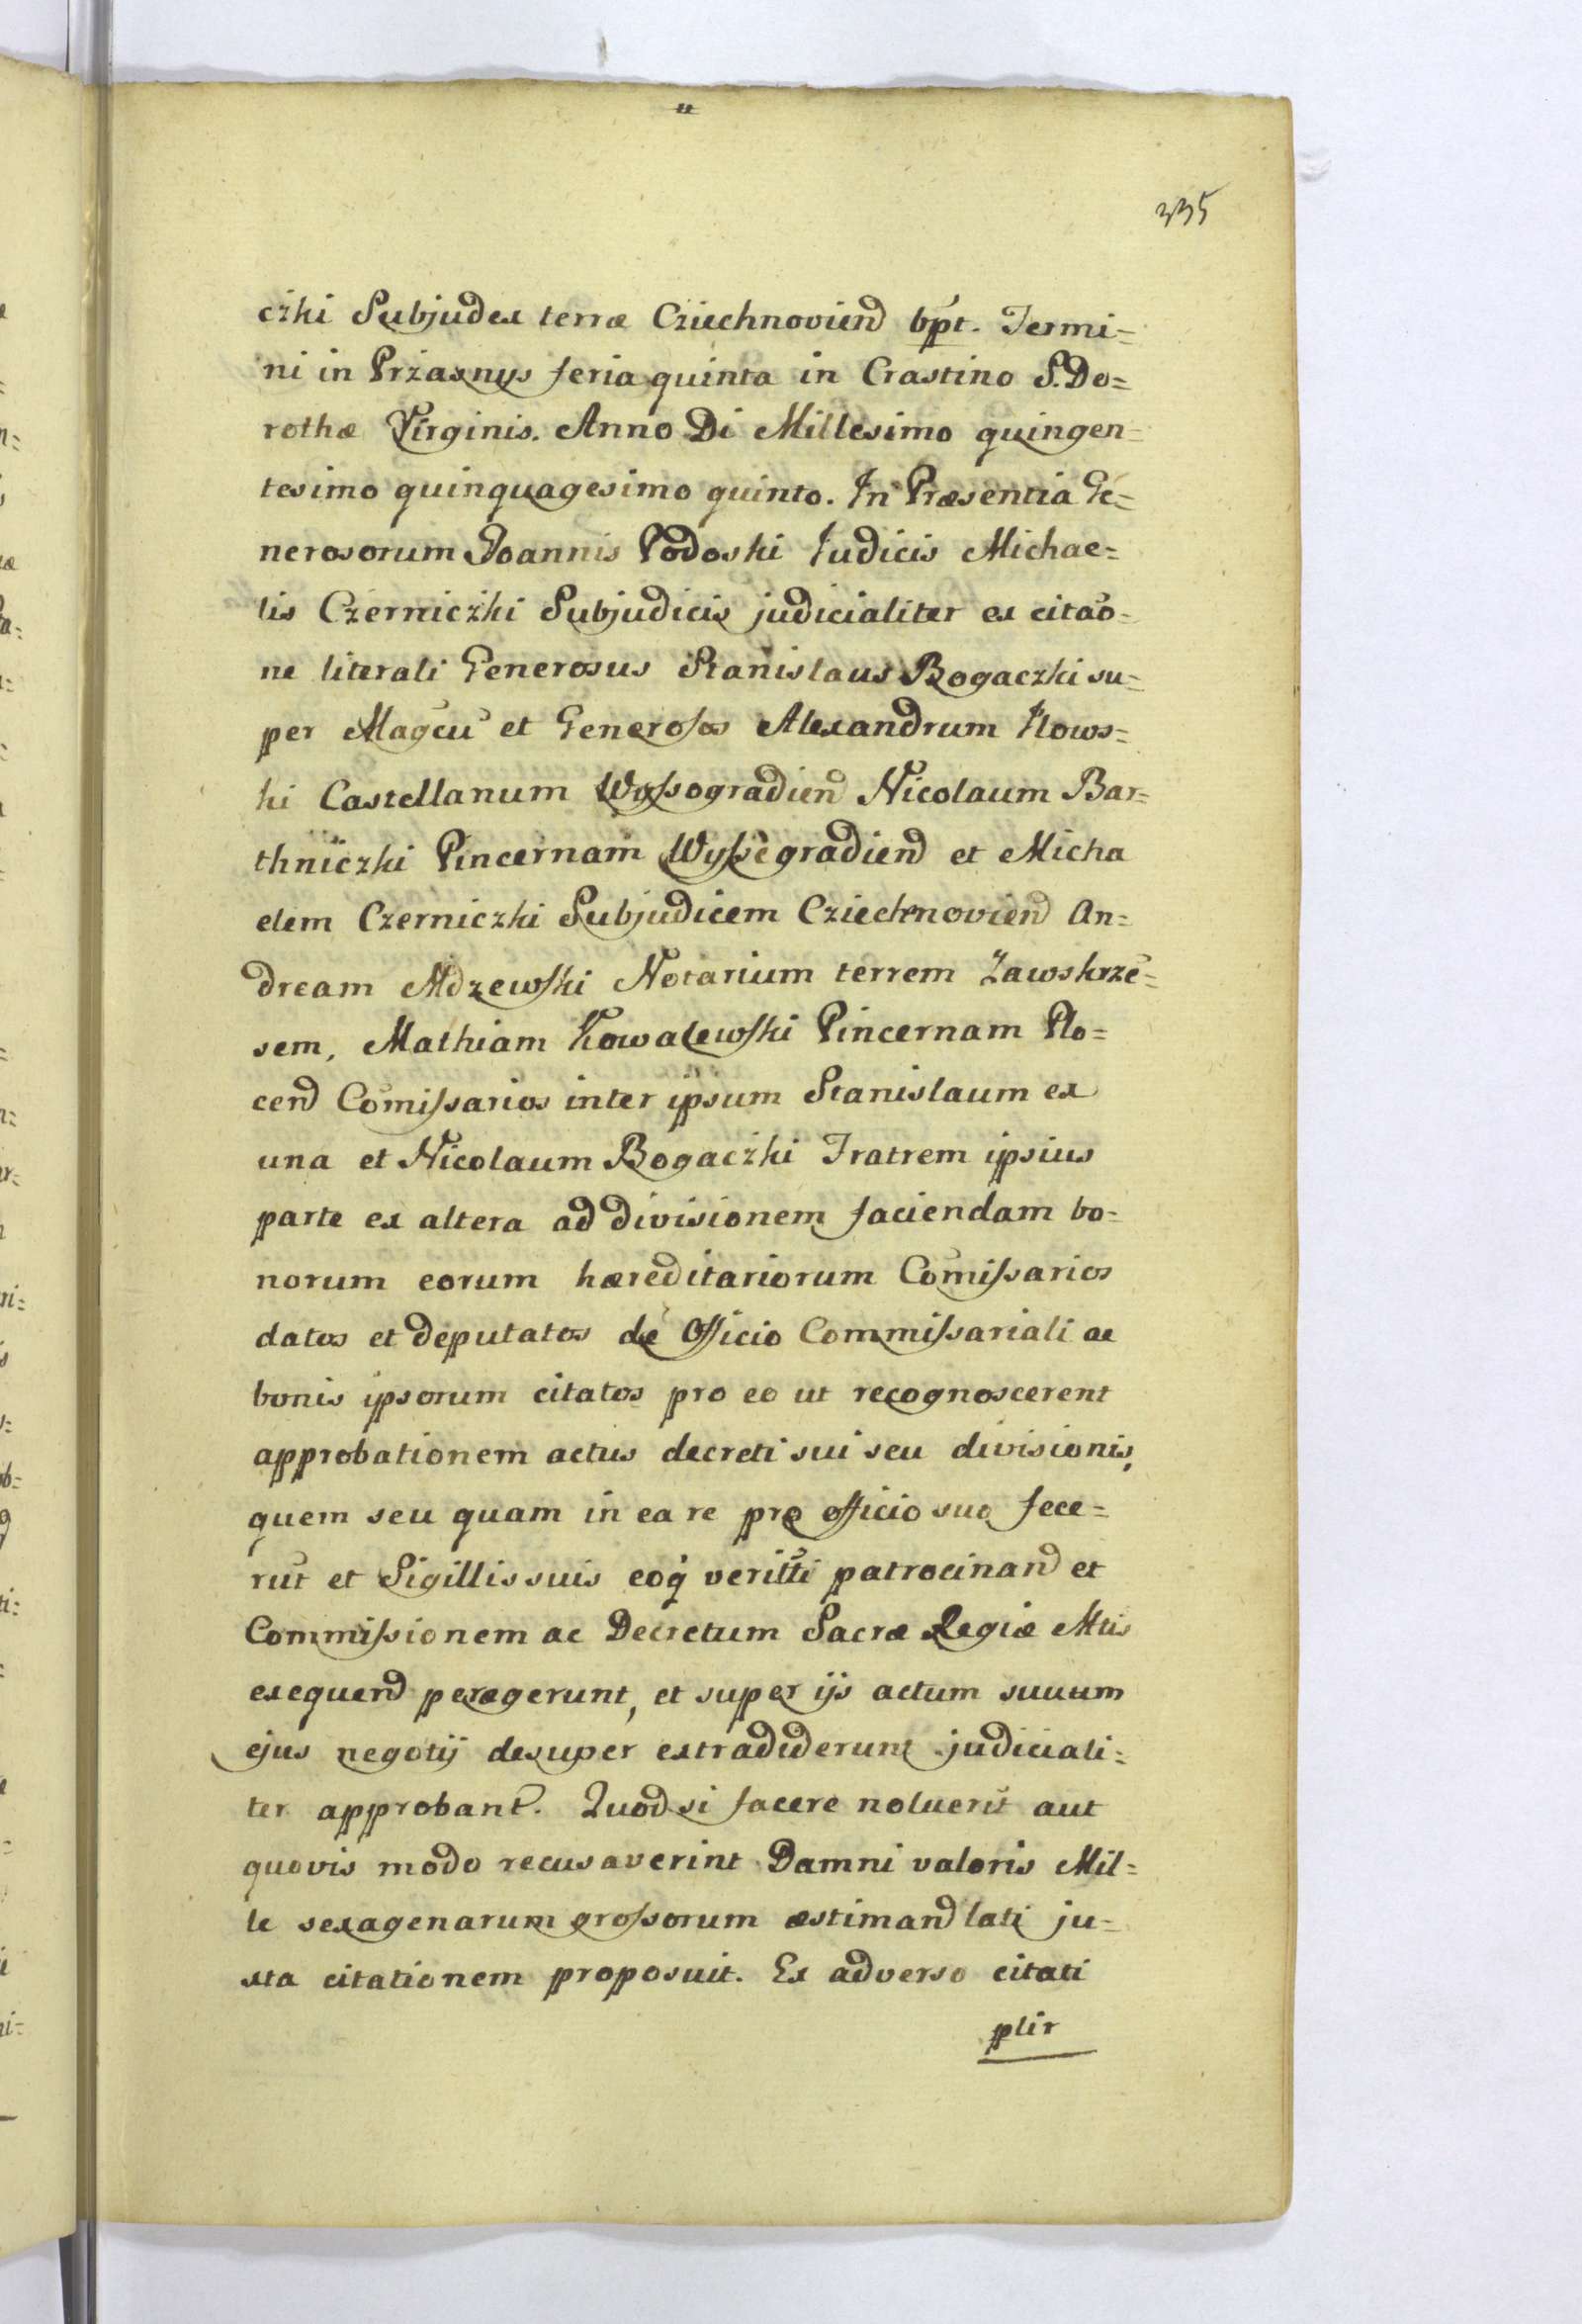 335
czki Subjudex terræ Cziechnovien̄d bp̄t. Termi=
ni in Przasnys feria quinta in Crastino S. Do=
rothæ Virginis. Anno Di Millesimo quingen=
tesimo quinquagesimo quinto. In Præsentia Ge=
nerosorum Joannis Podoski Judicis Michae=
lis Czerniczki Subjudicis judicialiter ex citao=
ne literali Generosus Stanislaus Bogaczki su=
per Magcu et Generosos Alexandrum Ilows=
ki Castellanum Wyssogradiend Nicolaum Bar=
thniczki Pincernam Wyssegradiend et Micha
elem Czerniczki Subjudicem Cziechnoviend An=
dream Mdzewski Notarium terrem Zawskrze=
sem, Mathiam Kowalewski Pincernam Plo=
cend Comissarios inter ipsum Stanislaum ex
una et Nicolaum Bogaczki Fratrem ipsius
parte ex altera ad divisionem faciendam bo=
norum eorum hæreditariorum Comissarios
datos et deputatos de Officio Commissariali ac
bonis ipsorum citatos pro eo ut recognoscerent
approbationem actus decreti sui seu divisionis,
quem seu quam in ea re pro officio suo fece=
rut et Sigillis suis eoq veritti patrocinand et
Commissionem ac Decretum Sacræ Regiæ Mtis
exequend peregerunt, et super ijs actum suuum
ejus negotij desuper extradiderunt judiciali=
ter approbant. Quod si facere noluerit aut
quovis modo recusaverint Damni valoris Mil=
le sexagenarum grossorum æstimand lati ju=
xta citationem proposuit. Ex adverso citati
plir